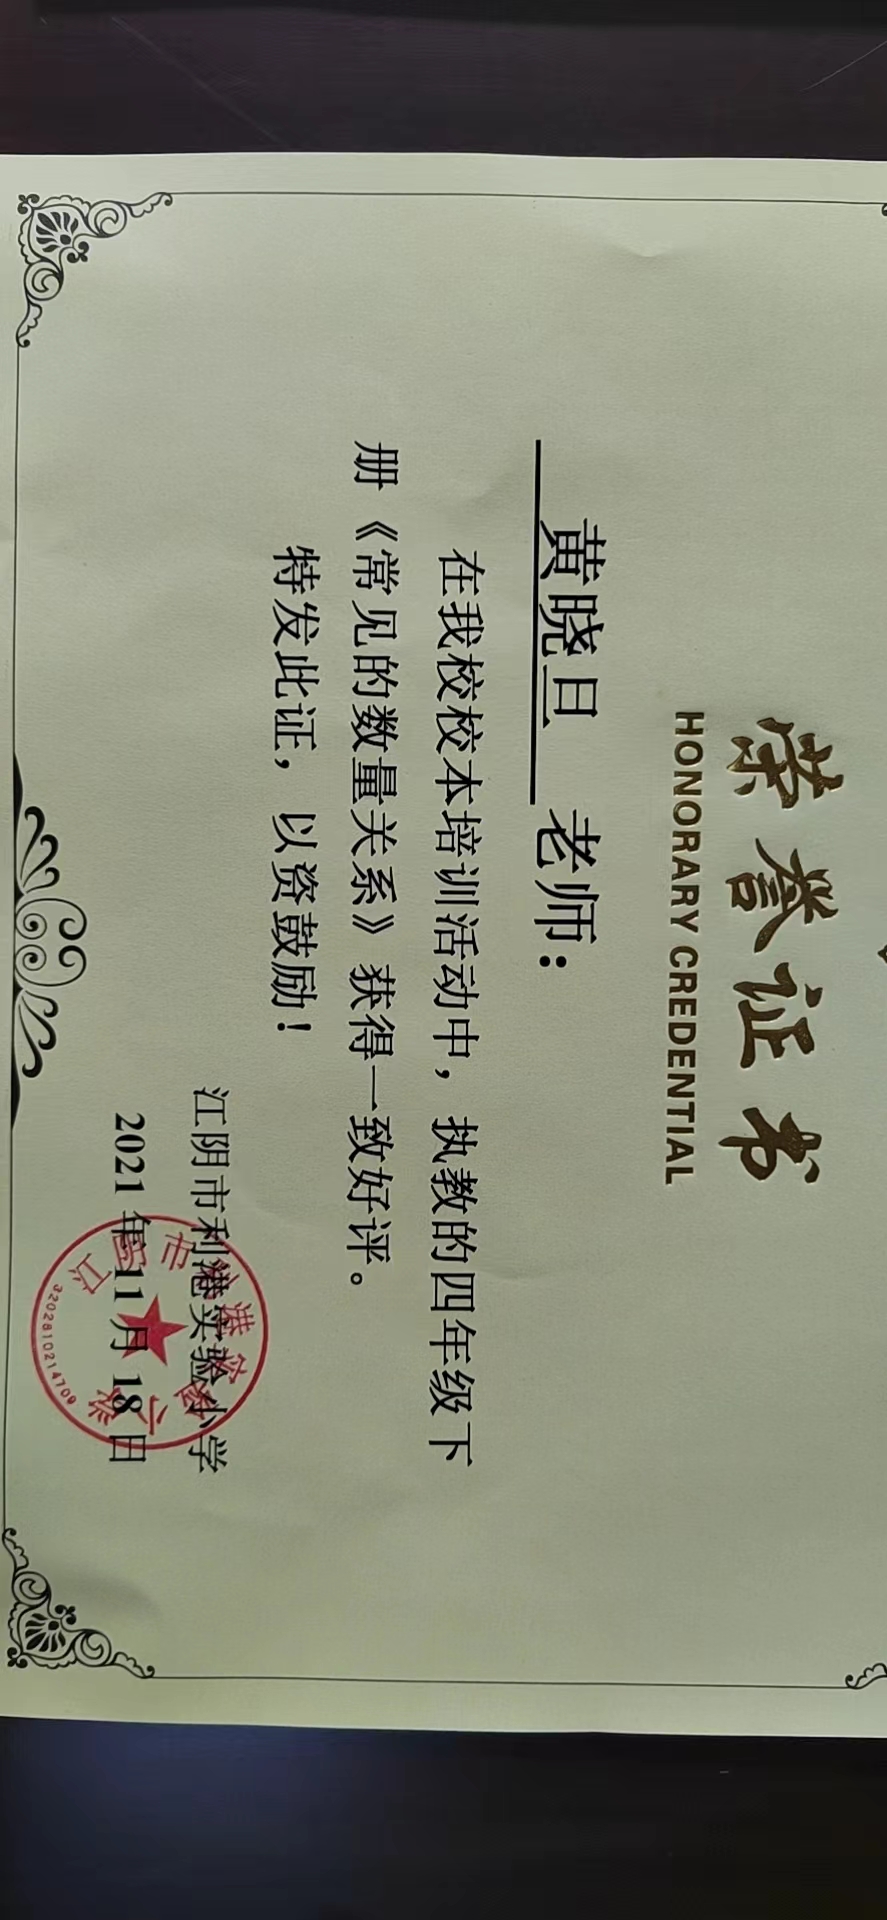 荣誉证书
HONORARY CREDENTIAL
黄晓旦 老师：
在我校校本培训活动中，执教的四年级下
册《常见的数量关系》获得一致好评。
特发此证，以资鼓励！
江阴市利港实验小学
2021 年 11 月 18 日
江阴市利港实验小学
3202810214709